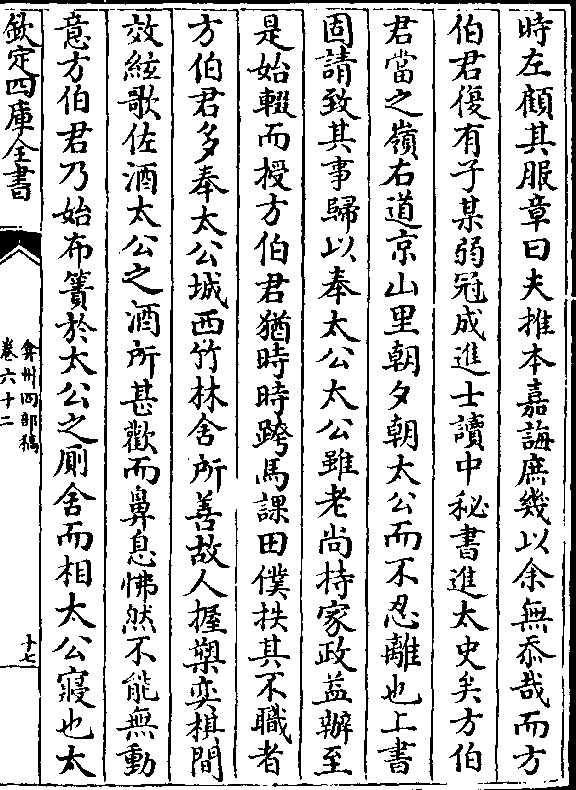 時左顧其服章曰夫推本嘉誨庶幾以余無忝哉而方
伯君復有子某弱冠成進士讀中秘書進太史矣方伯
君當之嶺右道京山里朝夕朝太公而不忍離也上書
固請致其事歸以奉太公太公雖老尚持家政益辦至
是始輟而授方伯君猶時時跨馬課田僕抶其不職者
方伯君多奉太公城西竹林舍所善故人握槊奕棋間
效絃歌佐酒太公之酒所甚歡而鼻息怫然不能無動
意方伯君乃始布簀於太公之厠舍而相太公寢也太
欽定四庫全書
弇州四部稿
卷六十二
十七